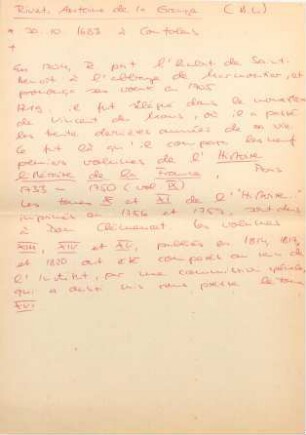 Rivet, Antoine de la Grange (H.L.)
* 30.10.1683 à Confolens
+
En 1704, il prit l'habit de Saint-
Benoît à l'abbaye de Marmoutier, et
prononça ses voeux en 1705
1719. il fut relégué dans le monastère
de Vincent du Mans, où il a passé
les trente dernières années de sa vie.
Ce fut là qu'il composa les neuf
premiers volumes de l'Histoire
littéraire de la France, Paris
1733 - 1750 (vol 9).
Les tomes X et XI de l'Histoire..
imprimés en 1756 et 1759, sont dûs
à Dom Clémencet les volumes
XIII, XIV et XV, publiés en 1814, 1817,
et 1820 ont été composés au sein de
l'Institut, par une commission spéciale,
qui a aussi mis sous presse le tome
XVI